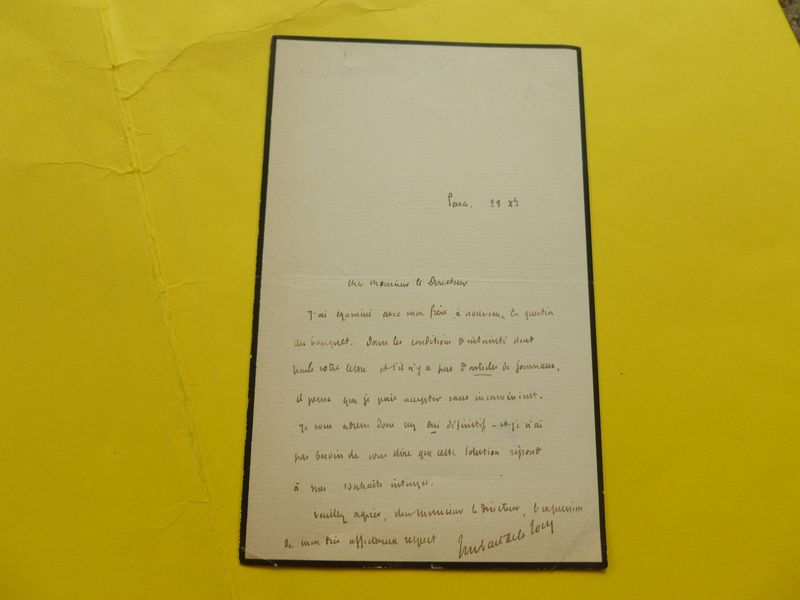 Paris, 29 Xbre
cher monsieur le Directeur
J'ai examiné avec mon frère à nouveau la question
du banquet. Dans les conditions d'intimité dont
parle votre lettre et s'il n'y a pas d'articles de journaux,
il pense que je puis accepter sans inconvénient.
Je vous adresse donc un oui définitif - et je n'ai
pas besoin de vous dire que cette solution répond
à mes souhaits intimes.
Veuillez agréer, cher monsieur le directeur, l'expression
de mon très affectueux respect
Imbart de la Tour